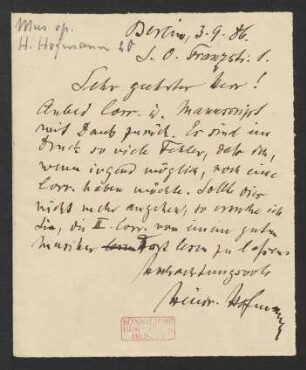 Mus. ep.
H. Hofmann 20
Berlin, 3. 9. 86.
S. O. Franzstr. 1.
Sehr geehrter Herr!
Anbei Corr. u. Manuscript
mit Dank zurück. Es sind im
Druck so viele Fehler, daß ich,
wenn irgend möglich, noch eine
Corr. haben möchte. Sollte dies
nicht mehr angehen, so ersuche ich
Sie, die II. Corr. von einem guten
Musiker dort lesen zu lassen.
Hochachtungsvoll
Heinr. Hofmann
KÖNIGLICHE
BERLIN